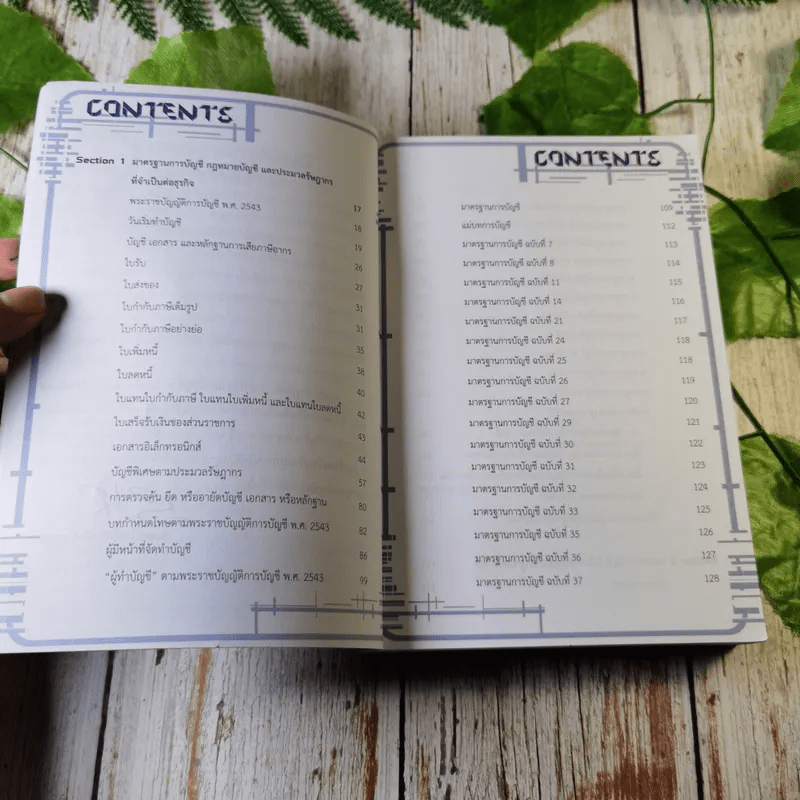 CONTENTS
Section 1 มาตรฐานการบัญชี กฎหมายบัญชี และประมวลรัษฎากร
ที่จำเป็นต่อธุรกิจ 17
พระราชบัญญัติการบัญชี พ.ศ. 2543 18
วันเริ่มทำบัญชี 19
บัญชี เอกสาร และหลักฐานการเสียภาษีอากร 26
ใบรับ 27
ใบส่งของ 31
ใบกำกับภาษีเต็มรูป 31
ใบกำกับภาษีอย่างย่อ 35
ใบเพิ่มหนี้ 38
ใบลดหนี้ 40
ใบแทนใบกำกับภาษี ใบแทนใบเพิ่มหนี้ และใบแทนใบลดหนี้ 42
ใบเสร็จรับเงินของส่วนราชการ 43
เอกสารอิเล็กทรอนิกส์ 44
บัญชีพิเศษตามประมวลรัษฎากร 57
การตรวจค้น ยึด หรืออายัดบัญชี เอกสาร หรือหลักฐาน 80
บทกำหนดโทษตามพระราชบัญญัติการบัญชี พ.ศ. 2543 82
ผู้มีหน้าที่จัดทำบัญชี 86
“ผู้ทำบัญชี” ตามพระราชบัญญัติการบัญชี พ.ศ. 2543 99
CONTENTS
มาตรฐานการบัญชี 109
แม่บทการบัญชี 112
มาตรฐานการบัญชี ฉบับที่ 7 113
มาตรฐานการบัญชี ฉบับที่ 8 114
มาตรฐานการบัญชี ฉบับที่ 11 115
มาตรฐานการบัญชี ฉบับที่ 14 116
มาตรฐานการบัญชี ฉบับที่ 21 117
มาตรฐานการบัญชี ฉบับที่ 24 118
มาตรฐานการบัญชี ฉบับที่ 25 118
มาตรฐานการบัญชี ฉบับที่ 26 119
มาตรฐานการบัญชี ฉบับที่ 27 120
มาตรฐานการบัญชี ฉบับที่ 29 121
มาตรฐานการบัญชี ฉบับที่ 30 122
มาตรฐานการบัญชี ฉบับที่ 31 123
มาตรฐานการบัญชี ฉบับที่ 32 124
มาตรฐานการบัญชี ฉบับที่ 33 125
มาตรฐานการบัญชี ฉบับที่ 35 126
มาตรฐานการบัญชี ฉบับที่ 36 127
มาตรฐานการบัญชี ฉบับที่ 37 128